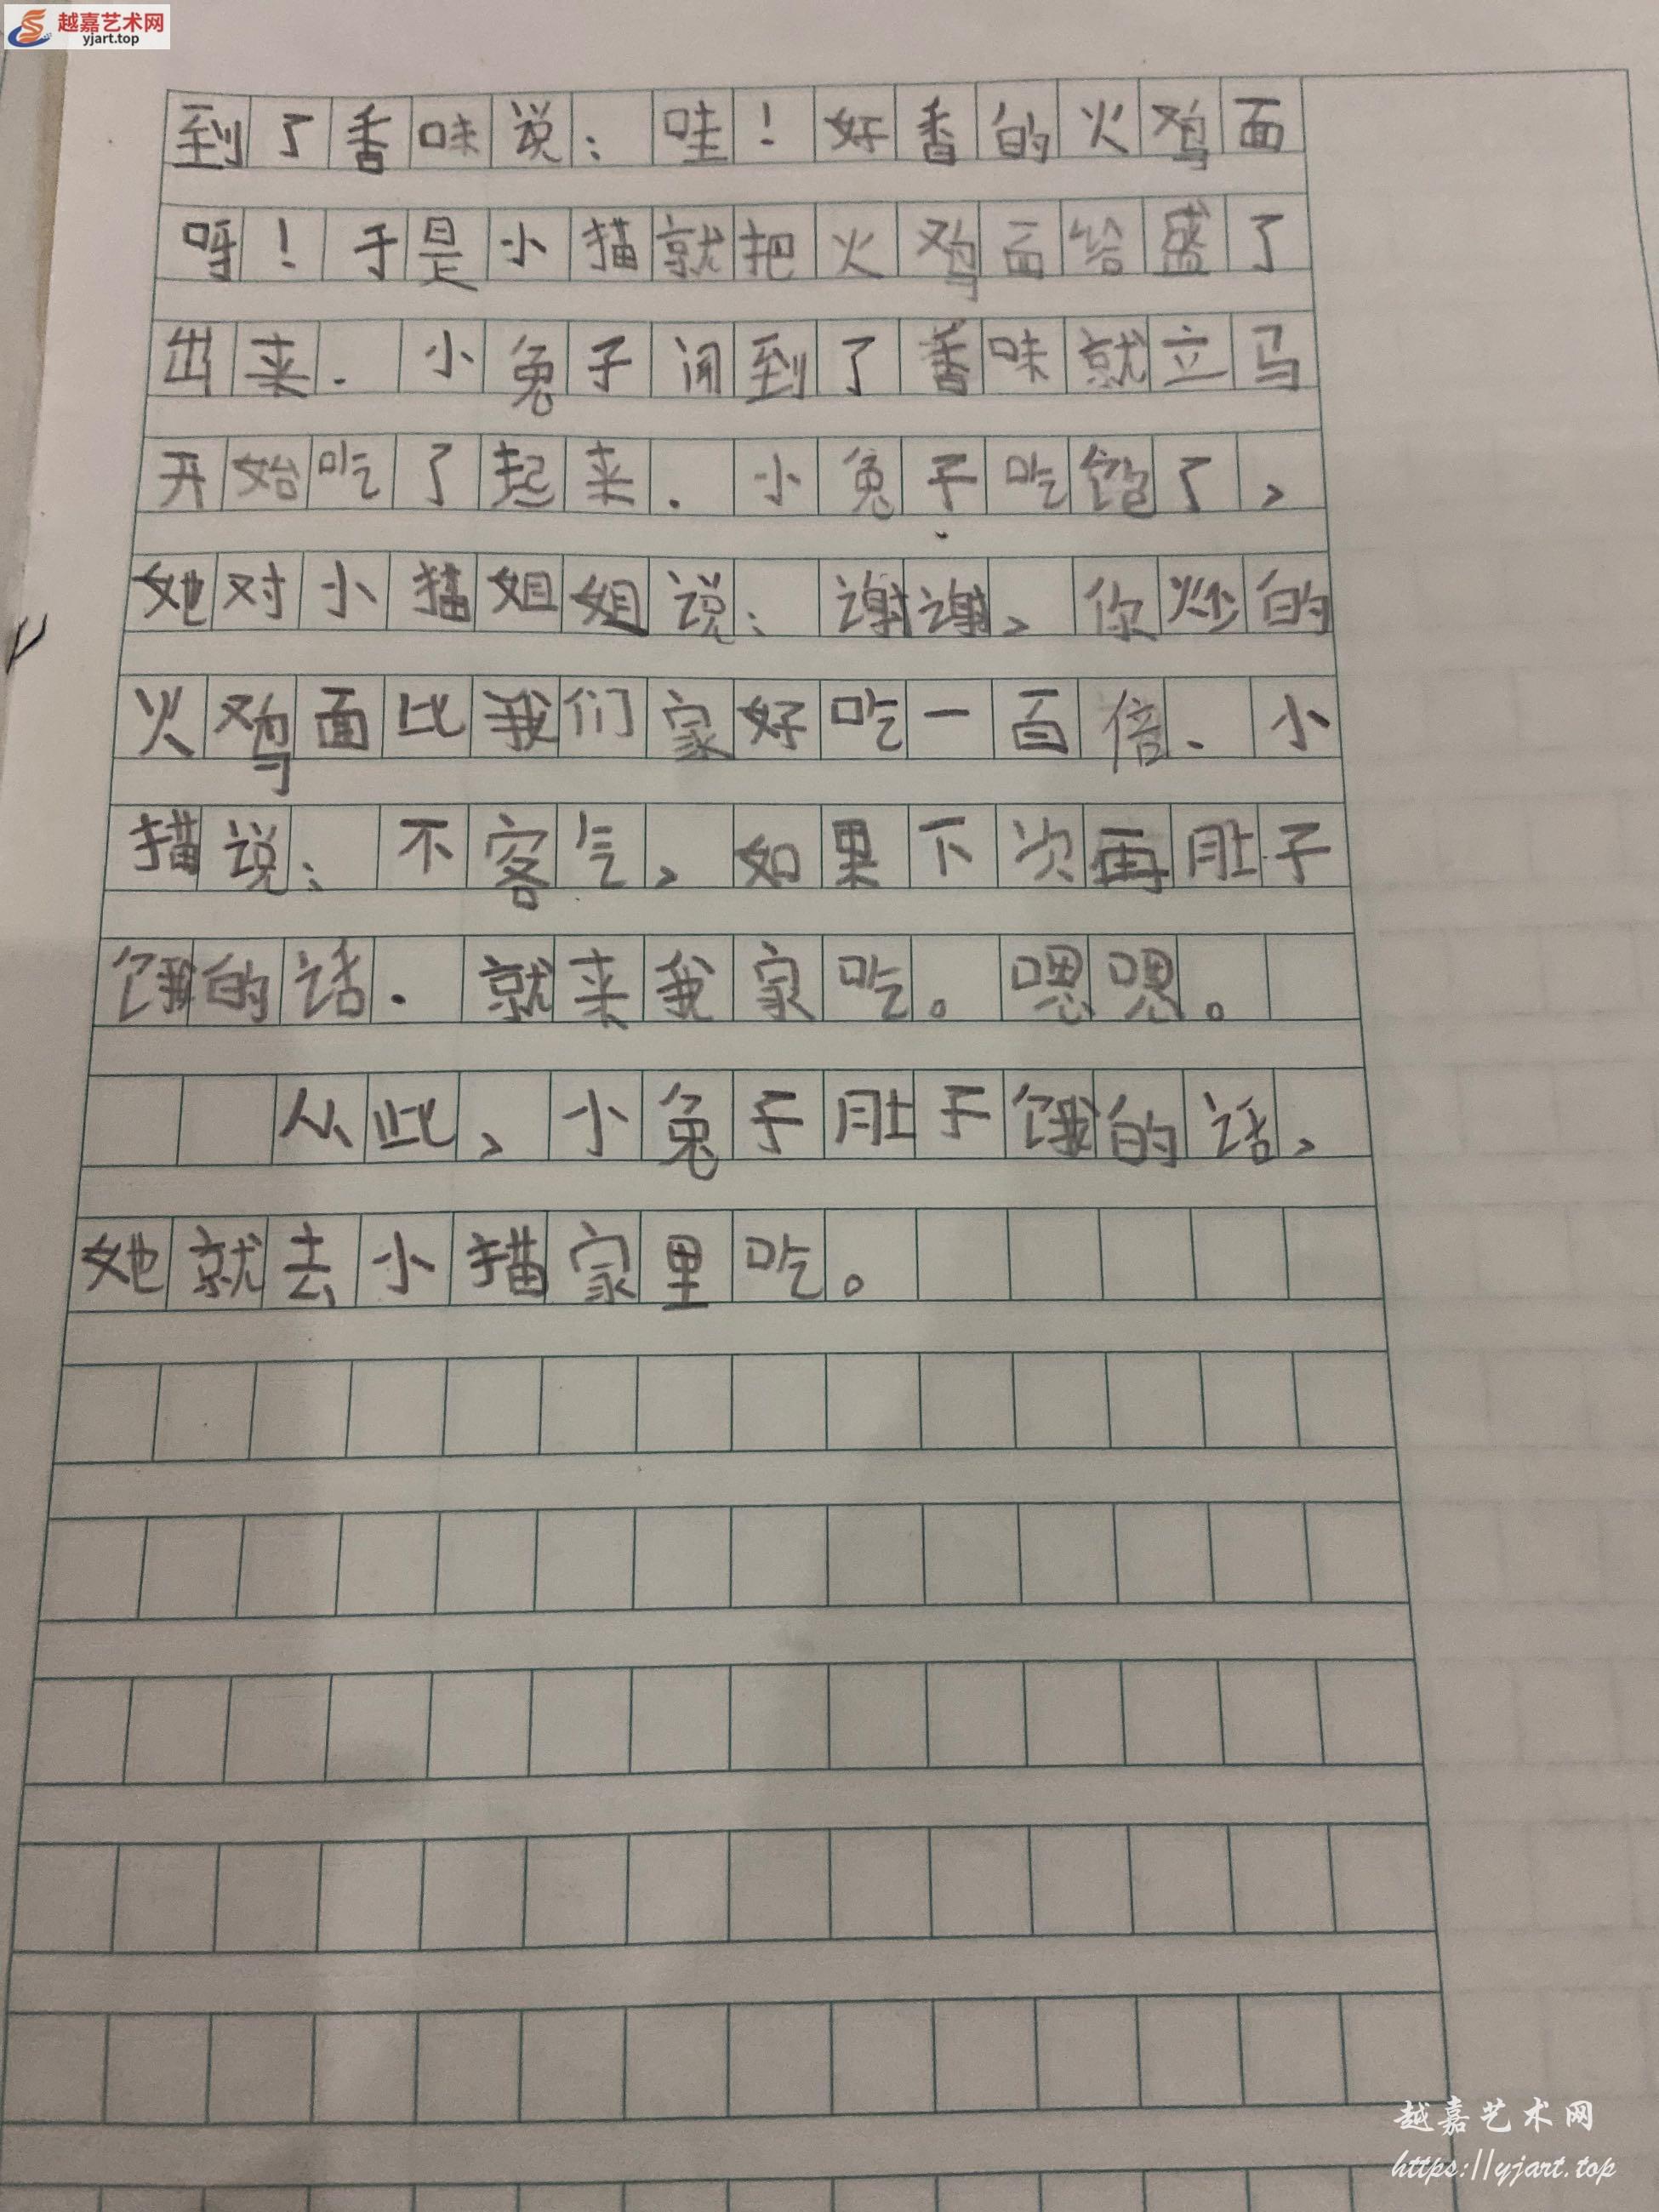 越嘉艺术网
yjart.top
到了香味说：哇！好香的火鸡面
呀！于是小猫就把火鸡面给盛了
出来.小兔子闻到了香味就立马
开始吃了起来.小兔子吃饱了，
她对小猫姐姐说：谢谢，你炒的
火鸡面比我们家好吃一百倍、小
猫说：不客气，如果下次再肚子
饿的话.就来我家吃。嗯嗯。
从此，小兔子肚子饿的话，
她就去小猫家里吃。
越嘉艺术网
https://yjart.top